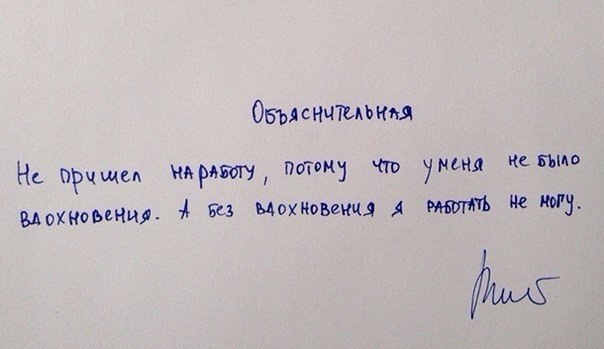 Объяснительная
Не пришел на работу, потому что у меня не было
вдохновения. А без вдохновения я работать не могу.